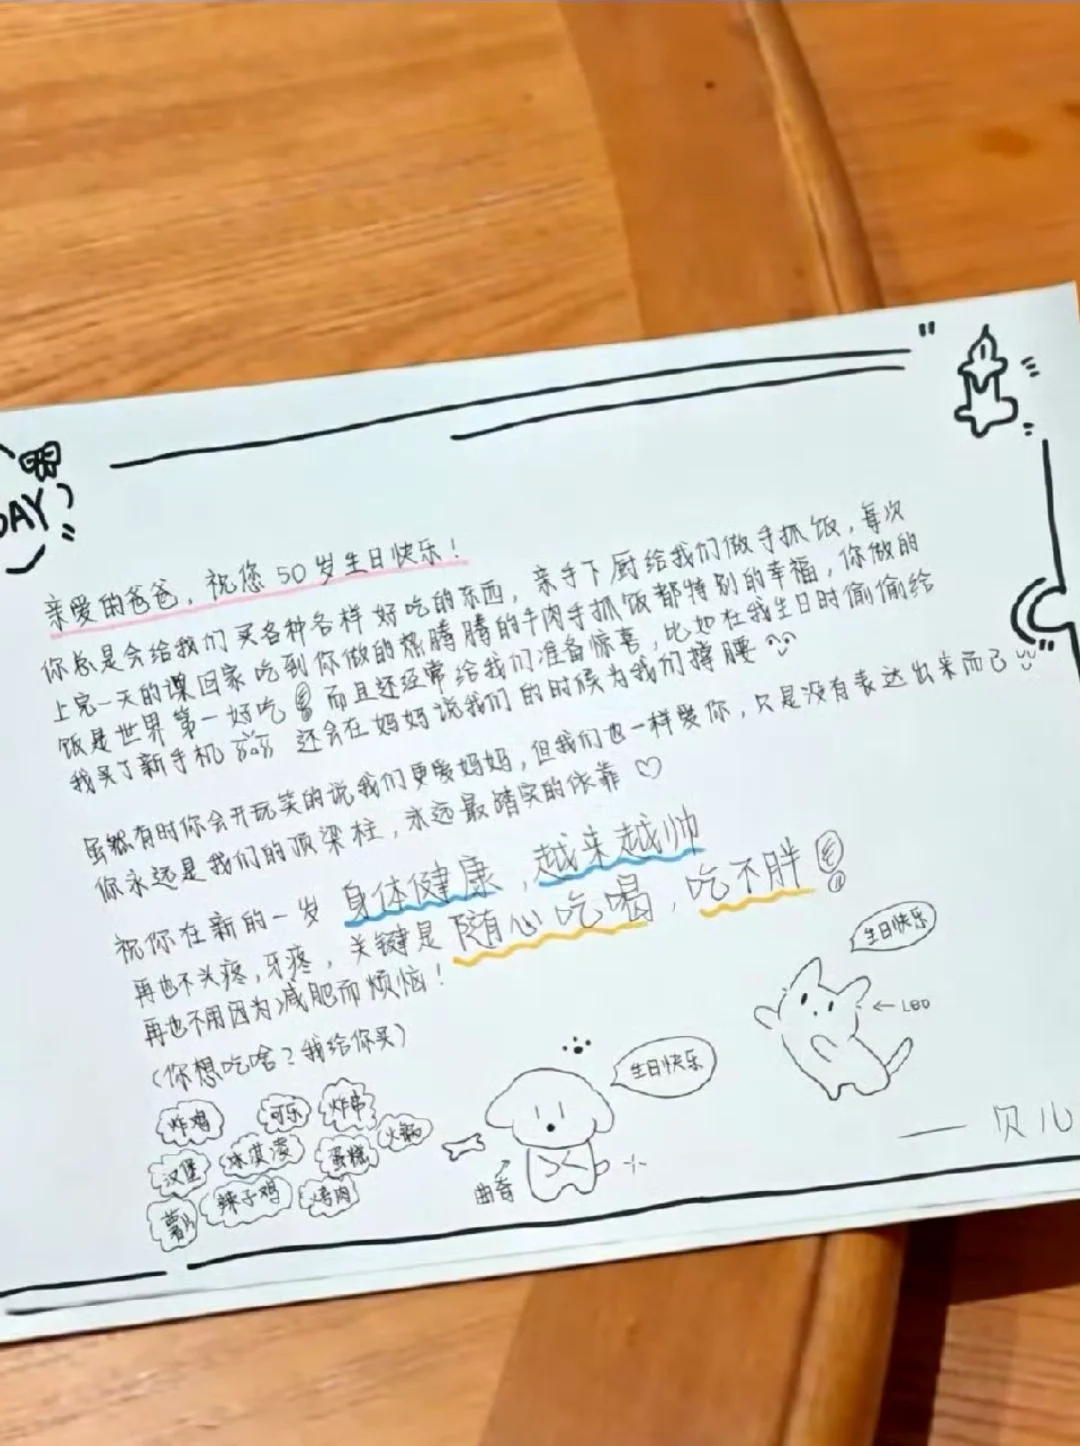 DAY
亲爱的爸爸，祝您50岁生日快乐！
你总是会给我们买各种各样好吃的东西，亲手下厨给我们做手抓饭，每次
上完一天的课回家吃到你做的热腾腾的牛肉手抓饭都特别的幸福，你做的
饭是世界第一好吃 而且还经常给我们准备惊喜，比如在我生日时偷偷给
我买了新手机 还会在妈妈说我们的时候为我们撑腰
虽然有时你会开玩笑的说我们更爱妈妈，但我们也一样爱你，只是没有表达出来而已
你永远是我们的顶梁柱，永远最踏实的依靠♡
祝你在新的一岁 身体健康，越来越帅
再也不头疼，牙疼，关键是随心吃喝，吃不胖
再也不用因为减肥而烦恼！
(你想吃啥？我给你买)
炸鸡 可乐 炸串
汉堡 冰淇淋 蛋糕 火锅
薯片 辣子鸡 烤肉
生日快乐
曲奇
生日快乐
←LEO
——贝儿